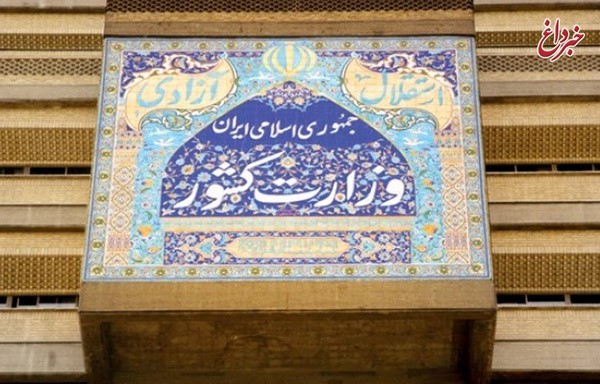 خبرداغ
استقلال آزادی
جمهوری اسلامی ایران
وزارت کشور